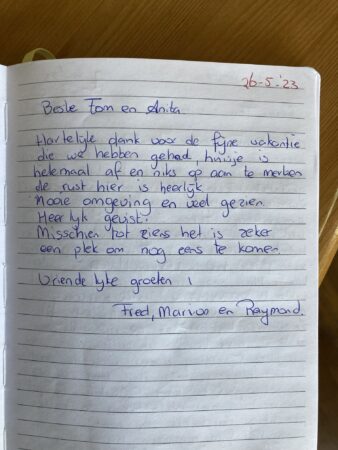 26-5-'23
Beste Tom en Anita.
Hartelijk dank voor de fijne vakantie
die we hebben gehad, huisje is
helemaal af en niks op aan te merken
de rust hier is heerlijk
Mooie omgeving en veel gezien.
Heerlyk gerust.
Misschien tot ziens het is zeker
een plek om nog eens te komen.
Vriendelyke groeten,
Fred, en Raymond.